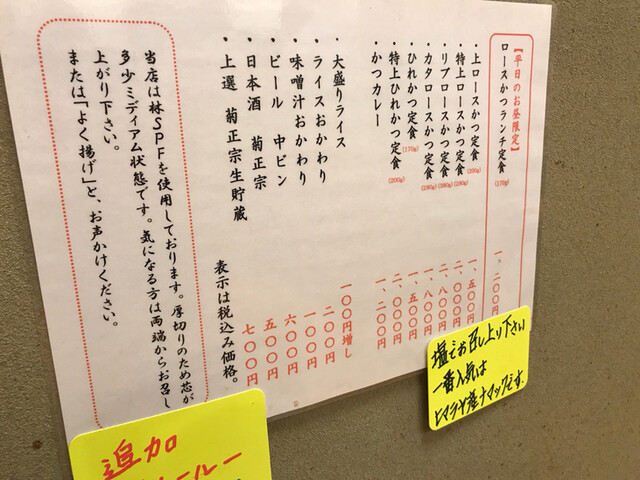 【平日のお昼限定】
ロースかつランチ定食(170g) 一、二〇〇円
・上ロースかつ定食(200g) 一、五〇〇円
・特上ロースかつ定食(280g) 二、〇〇〇円
・リブロースかつ定食(380g) 二、八〇〇円
・カタロースかつ定食(280g) 一、八〇〇円
・ひれかつ定食(170g) 一、五〇〇円
・特上ひれかつ定食(200g) 二、〇〇〇円
・かつカレー 一、二〇〇円
・大盛りライス 一〇〇円増し
・ライスおかわり 二〇〇円
・味噌汁おかわり 一〇〇円
・ビール 中ビン 六〇〇円
・日本酒 菊正宗 五〇〇円
・上選 菊正宗生貯蔵 七〇〇円
表示は税込み価格。
当店は林SPFを使用しております。厚切りのため芯が
多少ミディアム状態です。気になる方は両端からお召し
上がり下さい。
または「よく揚げ」と、お声かけください。
塩でお召し上り下さい
一番人気は
ヒマラヤ産ナマックです。
追加